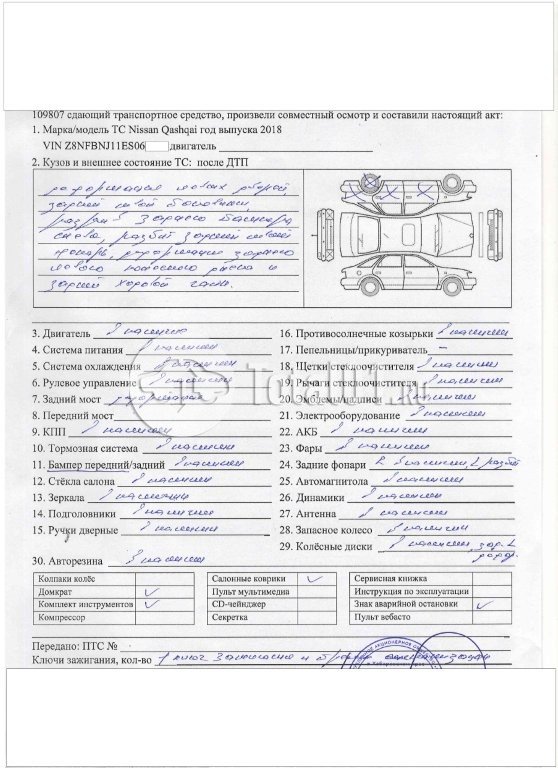 109807 сдающий транспортное средство, произвели совместный осмотр и составили настоящий акт:
1. Марка/модель ТС Nissan Qashqai год выпуска 2018
VIN Z8NFBNJ11ES06 двигатель
2. Кузов и внешнее состояние ТС: после ДТП
деформация левых дверей,
задней левой боковины,
разрыв заднего бампера
слева, разбит задний левый
фонарь, деформация заднего
левого колесного диска и
задней ходовой части.
3. Двигатель В наличии 16. Противосолнечные козырьки В наличии
4. Система питания В наличии 17. Пепельницы/прикуриватель -
5. Система охлаждения В наличии 18. Щетки стеклоочистителя В наличии
6. Рулевое управление В наличии 19. Рычаги стеклоочистителя В наличии
7. Задний мост деформация 20. Эмблемы/надписи В наличии
8. Передний мост 21. Электрооборудование В наличии
9. КПП В наличии 22. АКБ В наличии
10. Тормозная система В наличии 23. Фары В наличии
11. Бампер передний/задний В наличии 24. Задние фонари R В наличии, L разбит
12. Стёкла салона В наличии 25. Автомагнитола В наличии
13. Зеркала В наличии 26. Динамики В наличии
14. Подголовники В наличии 27. Антенна В наличии
15. Ручки дверные В наличии 28. Запасное колесо В наличии
29. Колёсные диски В наличии, зад. L
30. Авторезина В наличии
Колпаки колёс Салонные коврики Сервисная книжка
Домкрат Пульт мультимедиа Инструкция по эксплуатации
Комплект инструментов CD-чейнджер Знак аварийной остановки
Компрессор Секретка Пульт вебасто
Передано: ПТС №
Ключи зажигания, кол-во 1 ключ зажигания и брелок сигнализации